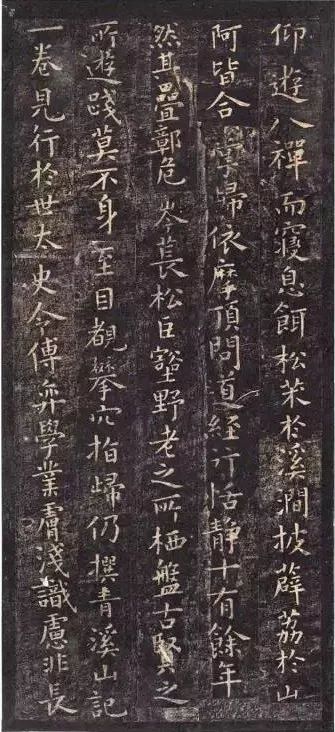 仰遊八禪而寢息餌松朮於溪澗披薜荔於山
阿皆合掌歸依摩頂問道經行恬靜十有餘年
然其疊鄣危岑萇松巨壑野老之所栖盤古賢之
所遊踐莫不身至目覩攀穴指歸仍撰青溪山記
一卷見行於世太史令傅弈學業膚淺識慮非長